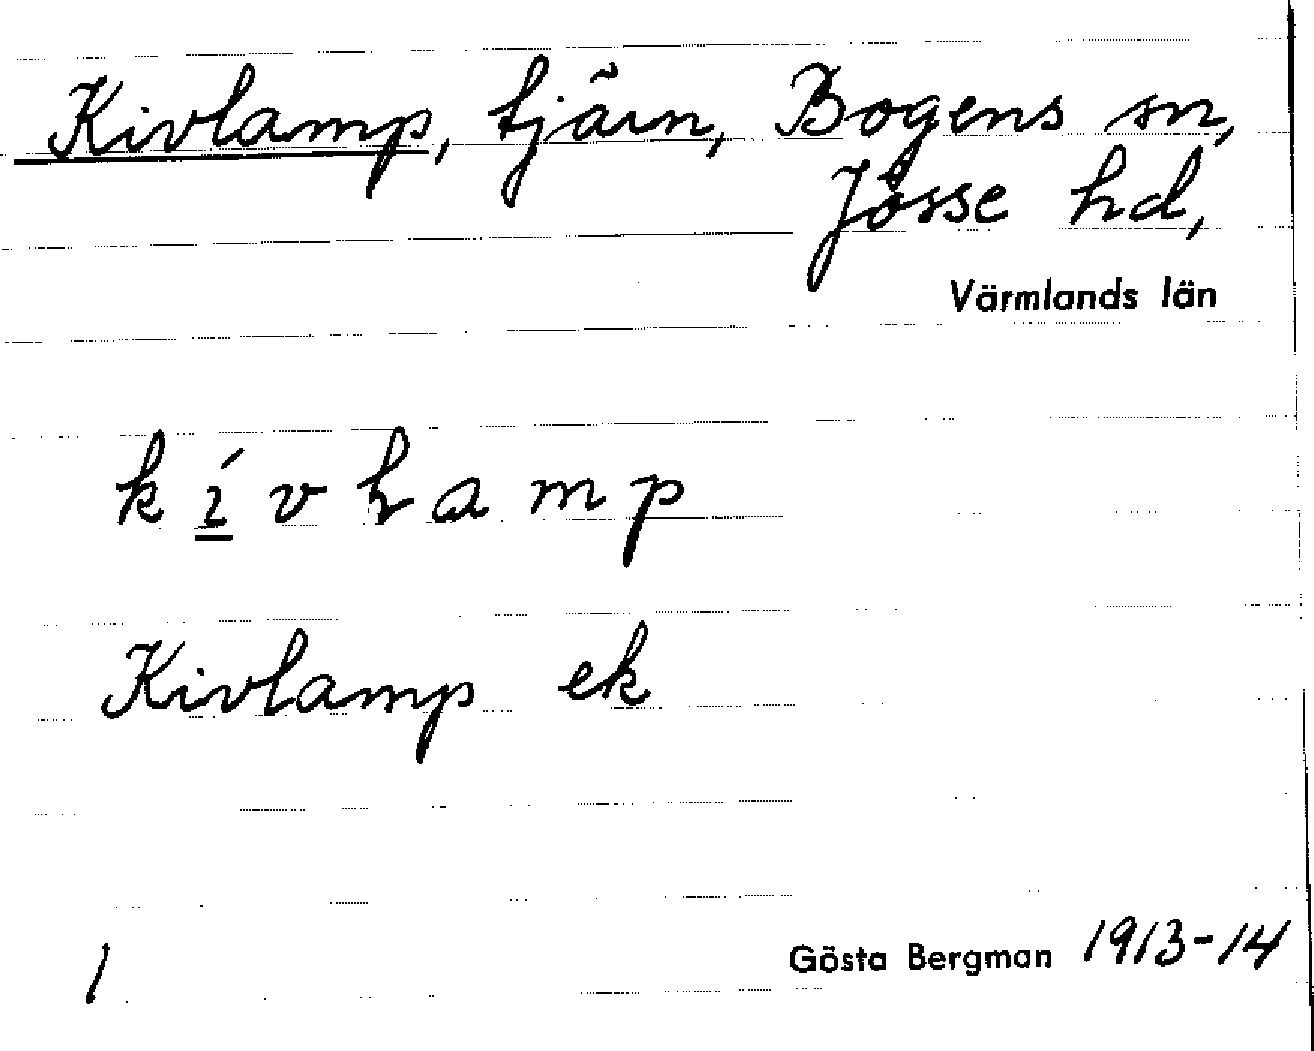 Kivlamp, tjärn, Bogens sn,
Jösse hd,
Värmlands län
k í v ƚ a m p
Kivlamp ek
1
Gösta Bergman 1913-14